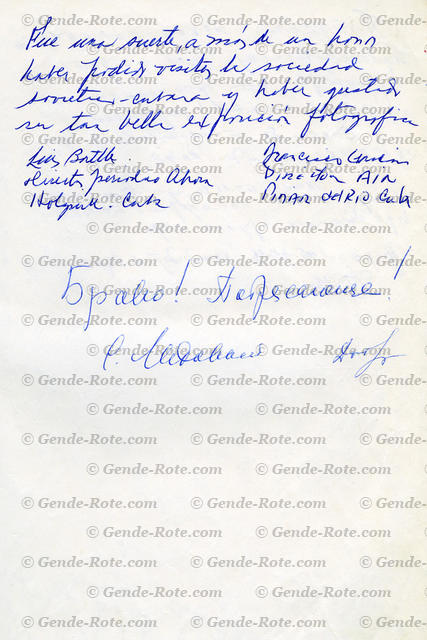 Fue una suerte, a más de un honor
haber podido visitar la sociedad
sovietica-cubana y haber
ver tan bella exposición fotografica
Luis
Director periodico Ahora
Holguin. Cuba
Francisco
DIRECTOR AIN
PINAR del RIO Cuba
Браво! Потрясающе!
С.
© Gende-Rote.com